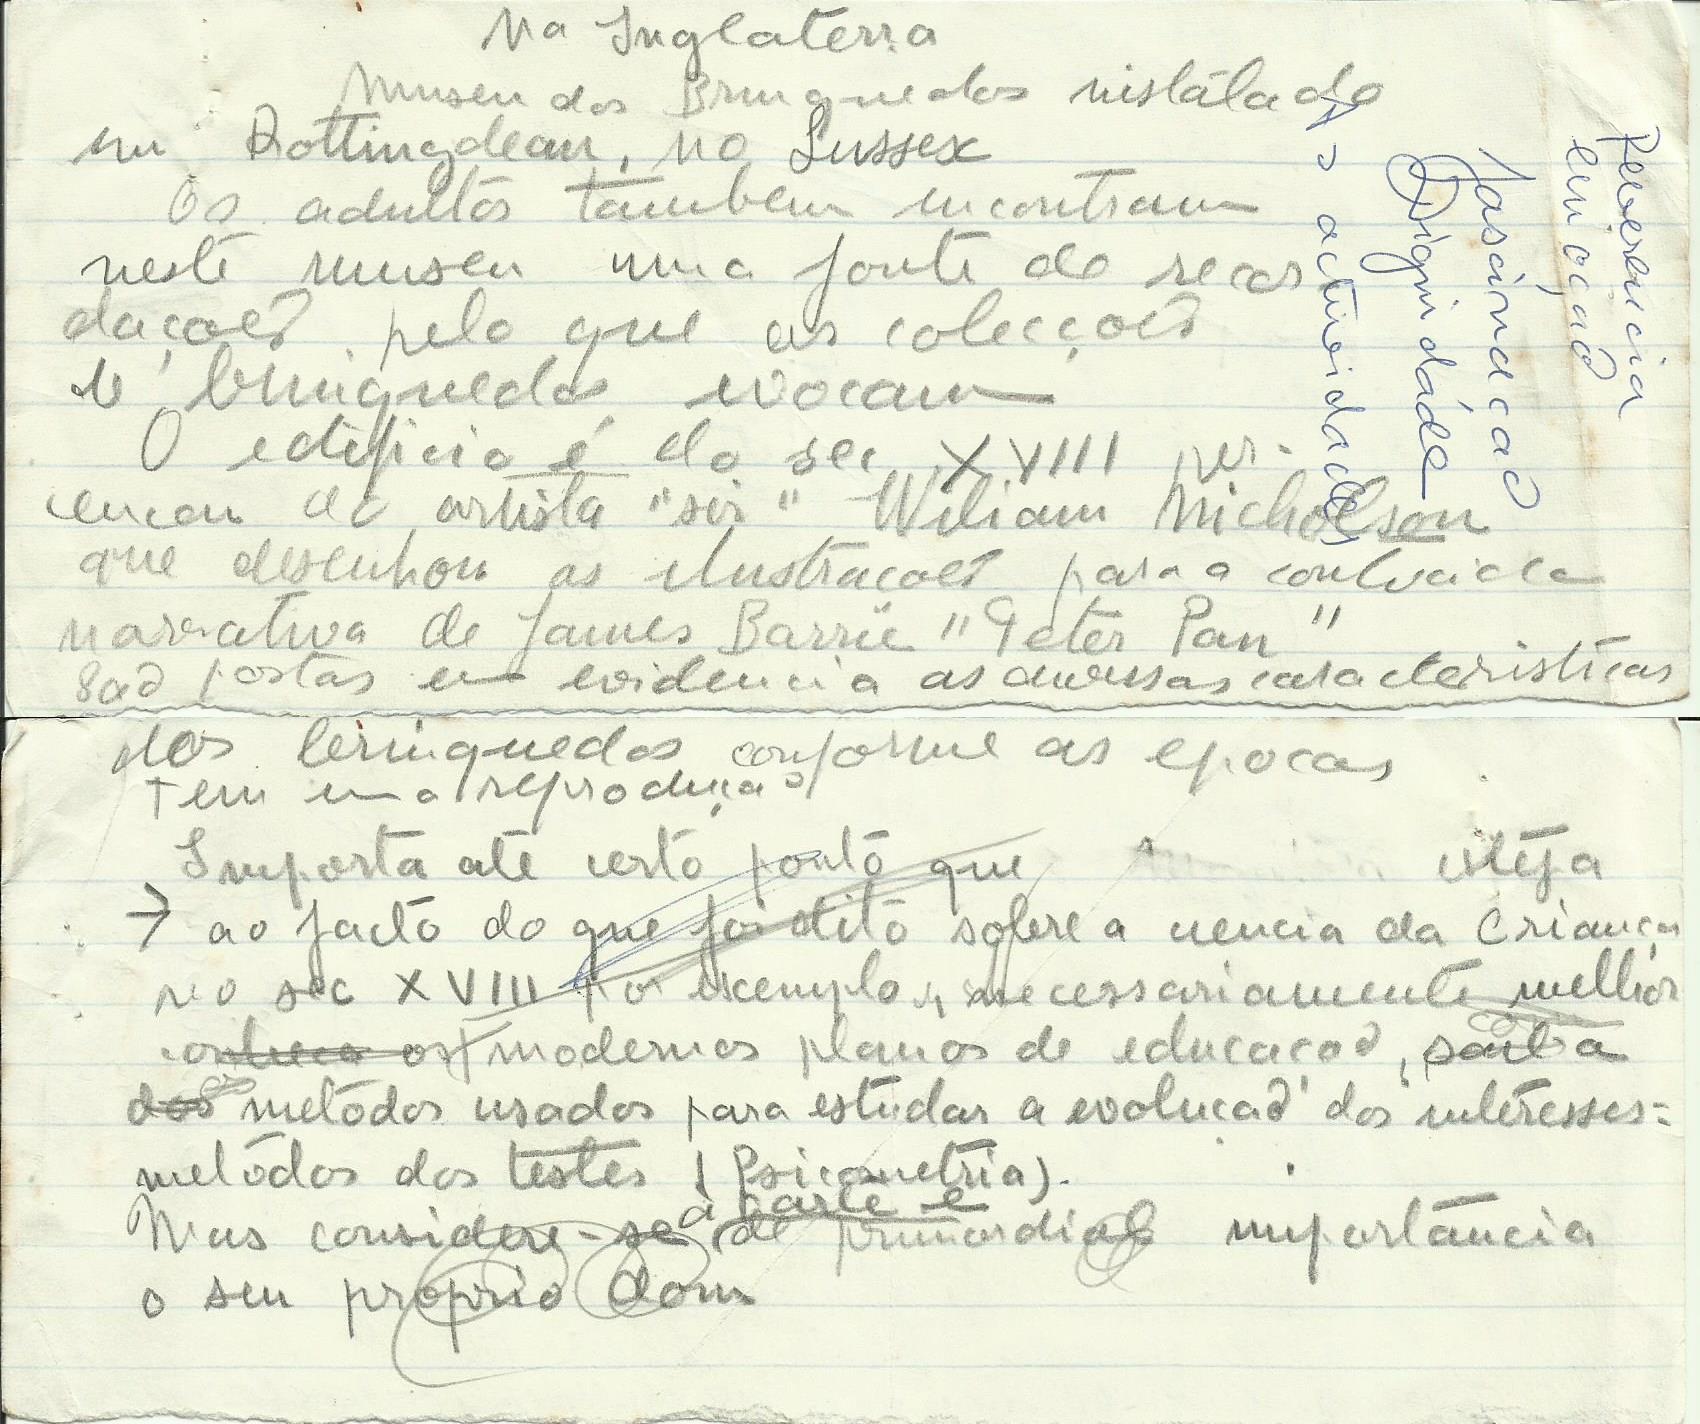 Na Inglaterra
Museu dos Brinquedos instalado
em Rottingdean, no Sussex
Os adultos tambem encontram
neste museu uma fonte de recor
dações pelo que as colecções
d' brinquedos evocam
O edificio é do sec XVIII per-
tenceu ao artista "sir" William Nicholson
que desenhou as ilustrações para a conhecida
narrativa de James Barrie "Peter Pan"
São postas em evidencia as diversas caracteristicas
dos brinquedos conforme as epocas
tem uma reprodução
Importa até certo ponto que esteja
→ ao facto do que foi dito sobre a ciencia da Criança
no sec XVIII por exemplo, necessariamente melhor
conheca os modernos planos de educação,
dos metodos usados para estudar a evolução dos interesses-
metodos dos testes (Psicometria).
à parte e
Mas considere-se de primordial importância
o seu proprio dom
as actividades
Dignidade
fascinação
emoção
Reverencia